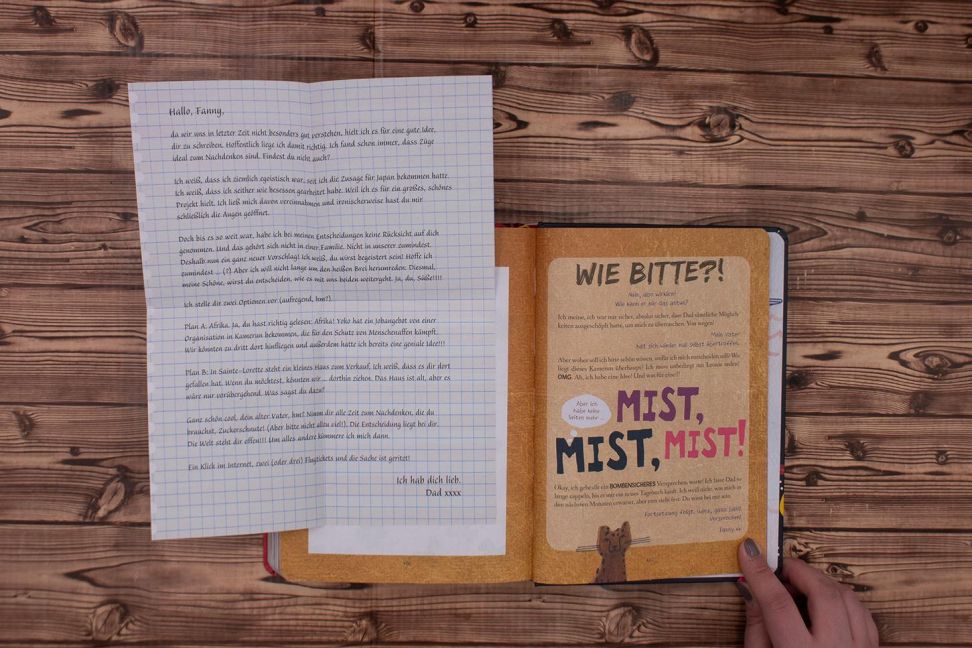 Hallo, Fanny,
da wir uns in letzter Zeit nicht besonders gut verstehen, hielt ich es für eine gute Idee,
dir zu schreiben. Hoffentlich liege ich damit richtig. Ich fand schon immer, dass Züge
ideal zum Nachdenken sind. Findest du nicht auch?
Ich weiß, dass ich ziemlich egoistisch war, seit ich die Zusage für Japan bekommen hatte.
Ich weiß, dass ich seither wie besessen gearbeitet habe. Weil ich es für ein großes, schönes
Projekt hielt. Ich ließ mich davon vereinnahmen und ironischerweise hast du mir
schließlich die Augen geöffnet.
Doch bis es so weit war, habe ich bei meinen Entscheidungen keine Rücksicht auf dich
genommen. Und das gehört sich nicht in einer Familie. Nicht in unserer zumindest.
Deshalb nun ein ganz neuer Vorschlag! Ich weiß, du wirst begeistert sein! Hoffe ich
zumindest ... (?) Aber ich will nicht lange um den heißen Brei herumreden. Diesmal,
meine Schöne, wirst du entscheiden, wie es mit uns beiden weitergeht. Ja, du, Süße!!!!
Ich stelle dir zwei Optionen vor (aufregend, hm?).
Plan A: Afrika. Ja, du hast richtig gelesen: Afrika! Yoko hat ein Jobangebot von einer
Organisation in Kamerun bekommen, die für den Schutz von Menschenaffen kämpft.
Wir könnten zu dritt dort hinfliegen und außerdem hätte ich bereits eine geniale Idee!!!
Plan B: In Sainte-Lorette steht ein kleines Haus zum Verkauf. Ich weiß, dass es dir dort
gefallen hat. Wenn du möchtest, könnten wir ... dorthin ziehen. Das Haus ist alt, aber es
wäre nur vorübergehend. Was sagst du dazu?
Ganz schön cool, dein alter Vater, hm? Nimm dir alle Zeit zum Nachdenken, die du
brauchst, Zuckerschnute! (Aber bitte nicht allzu viel!). Die Entscheidung liegt bei dir.
Die Welt steht dir offen!!! Um alles andere kümmere ich mich dann.
Ein Klick im Internet, zwei (oder drei) Flugtickets und die Sache ist geritzt!
Ich hab dich lieb.
Dad xxxx
WIE BITTE?!
Nein, also wirklich!
Wie kann er mir das antun?
Ich meine, ich war mir sicher, absolut sicher, dass Dad sämtliche Möglich-
keiten ausgeschöpft hatte, um mich zu überraschen. Von wegen!
Mein Vater
hat sich wieder mal selbst übertroffen.
Aber woher soll ich bitte schön wissen, wofür ich mich entscheiden soll? Wo
liegt dieses Kamerun überhaupt? Ich muss unbedingt mit Leonie reden!
OMG. Ah, ich habe eine Idee! Und was für eine!!
Aber ich
habe keine
Seiten mehr ...
MIST,
MIST, MIST!
Okay, ich gebe dir ein BOMBENSICHERES Versprechen, warte! Ich lasse Dad so
lange zappeln, bis er mir ein neues Tagebuch kauft. Ich weiß nicht, was mich in
den nächsten Monaten erwartet, aber eins steht fest: Du wirst bei mir sein.
Fortsetzung folgt. Hoho, ganz bald!
Versprochen!
Fanny xx